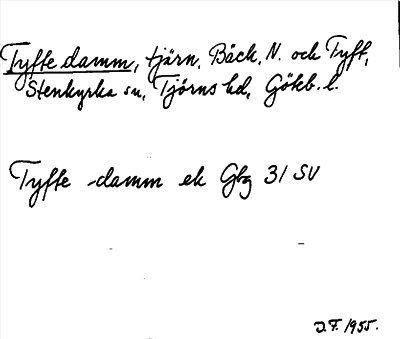 Tyfte damm, tjärn, Bäck, N. och Tyft,
Stenkyrka sn, Tjörns hd, Götkb. l.
Tyfte -damm ek Gbg 31 SV
J.F. 1955.